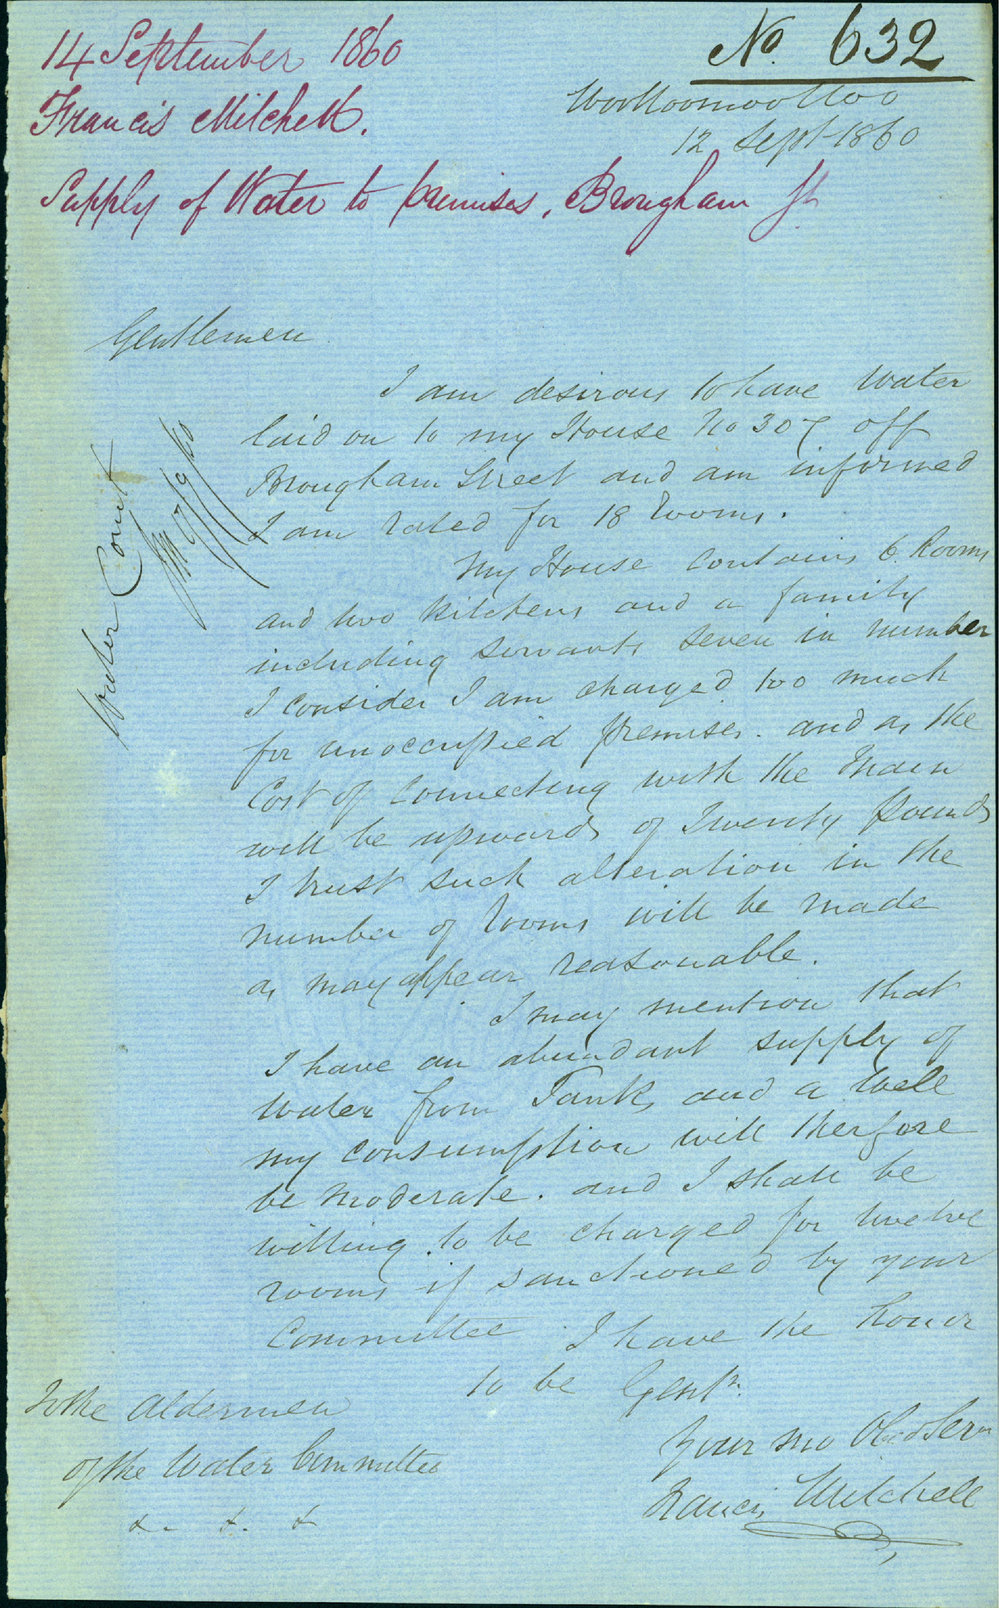 14 September 1860
Francis Mitchell.
Supply of Water to premises, Brougham St
No. 632
Woolloomoolloo
12 Sept 1860
Gentlemen
I am desirous to have Water
laid on to my House No 307 off
Brougham Street and am informed
I am rated for 18 Rooms.
My House contains 6 Rooms
and two kitchens and a family
including servants seven in number
I consider I am charged too much
for unoccupied premises. and as the
Cost of Connecting with the Main
will be upwards of Twenty pounds
I trust such alteration in the
number of rooms will be made
as may appear reasonable.
I may mention that
I have an abundant supply of
Water from Tanks and a Well
my consumption will therefore
be moderate. and I shall be
willing to be charged for twelve
rooms if sanctioned by your
Committee. I have the honor
to be Gentn.
Your mo Obed Serv
Francis Mitchell
To the Aldermen
of the Water Committee
&. &. &
Water Comtt